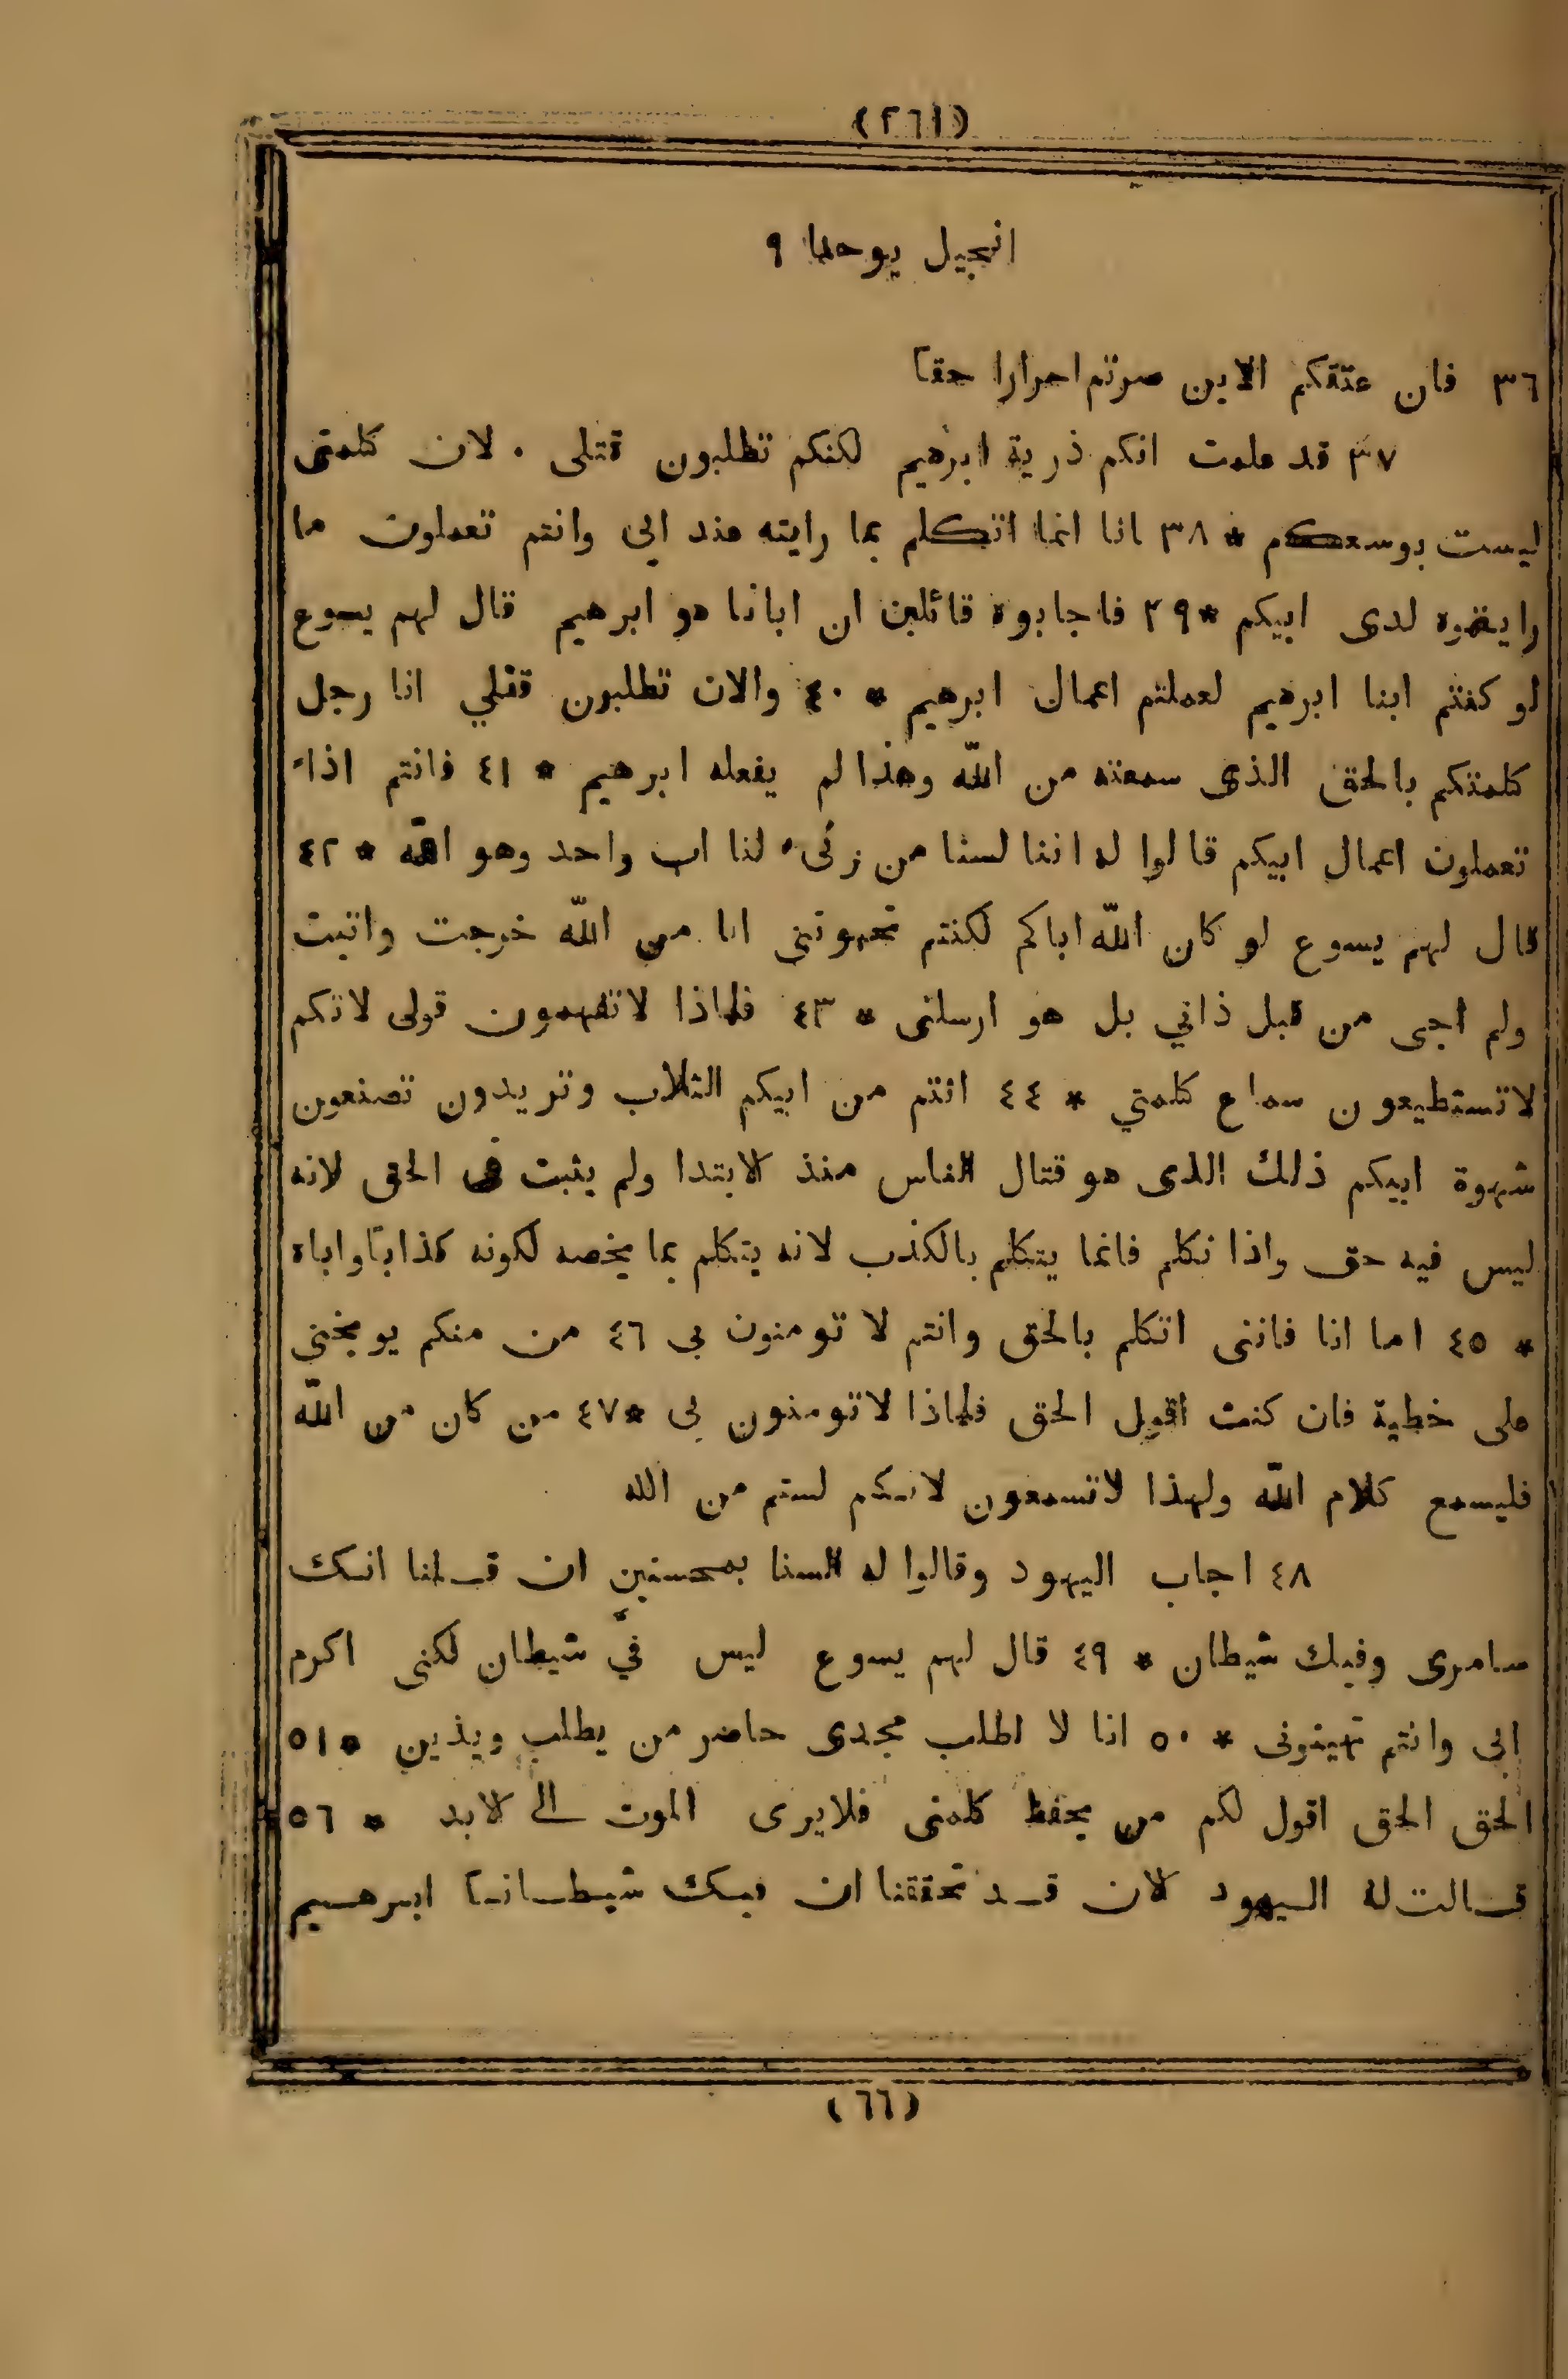 (٢٦١)
انجيل يوحنا ٩
٣٦ فان عتقكم الابن صرتم احرارا حقا
٣٧ قد علمت انكم ذرية ابرهيم لكنكم تطلبون قتلى . لان كلمتى
ليست بوسعكم * ٣٨ انا انما اتكلم بما رايته عند ابى وانتم تعملون ما
رايتموه لدى ابيكم * ٣٩ فاجابوه قائلين ان ابانا هو ابرهيم قال لهم يسوع
لو كنتم ابنا ابرهيم لعملتم اعمال ابرهيم * ٤٠ والان تطلبون قتلي انا رجل
كلمتكم بالحق الذى سمعته من اللّه وهذا لم يفعله ابرهيم * ٤١ فانتم اذاً
تعملون اعمال ابيكم قالوا له اننا لسنا من زنى لنا اب واحد وهو اللّه * ٤٢
قال لهم يسوع لو كان اللّه اباكم لكنتم تحبوننى انا من اللّه خرجت واتيت
ولم اجى من قبل ذاتي بل هو ارسلنى * ٤٣ فلماذا لاتفهمون قولى لانكم
لاتستطيعون سماع كلمتي * ٤٤ انتم من ابيكم الثلاب وتريدون تصنعون
شهوة ابيكم ذلك الذى هو قتال الناس منذ الابتدا ولم يثبت فى الحق لانه
ليس فيه حق واذا تكلم فانما يتكلم بالكذب لانه يتكلم بما يخصه لكونه كذاباً واباه
* ٤٥ اما انا فاننى اتكلم بالحق وانتم لا تومنون بى ٤٦ من منكم يوبخني
على خطية فان كنت اقول الحق فلماذا لاتومنون بى * ٤٧ من كان من اللّه
فليسمع كلام اللّه ولهذا لاتسمعون لانكم لستم من الله
٤٨ اجاب اليهود وقالوا له السنا بمحسنين ان قـلنا انـك
سامرى وفيك شيطان * ٤٩ قال لهم يسوع ليس فيَّ شيطان لكنى اكرم
ابى وانتم تهينونى * ٥٠ انا لا اطلب مجدى حاضر من يطلب ويذين * ٥١
الحق الحق اقول لكم من يحفظ كلمتى فلايرى الموت الى الابد * ٥٦
قـالت له اليهود الان قـد تحققنا ان فيـك شيطـانـا ابـرهـيم
(٦٦)